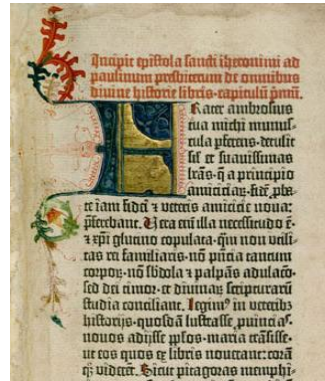 Incipit epistola sancti iheronimi ad
paulinum presbiterum de omnibus
divine historie libris · capitulū pmū.
Frater ambrosius
tua michi munus-
cula pferens · detulit
sil et suavissimas
lrās · q a principio
amiciciaȝ · fidē pba-
te iam fidei ⁊ veteris amicicie nova:
pferebant. Vera eni illa necessitudo ē ·
⁊ xpi glutino copulata · qm non utili-
tas rei familiaris · nō pncia tantum
corpoȝ · nō sbdola ⁊ palpās adulacō ·
sed dei timor · et divinaȝ scripturarū
studia conciliant. Legimꝰ in veteribȝ
historiis · quosdā lustrasse puincias ·
novos adiisse pplos · maria trāsisse ·
ut eos quos ex libris noverant: corā
qȝ viderēt. Sicut pitagoras memphi-